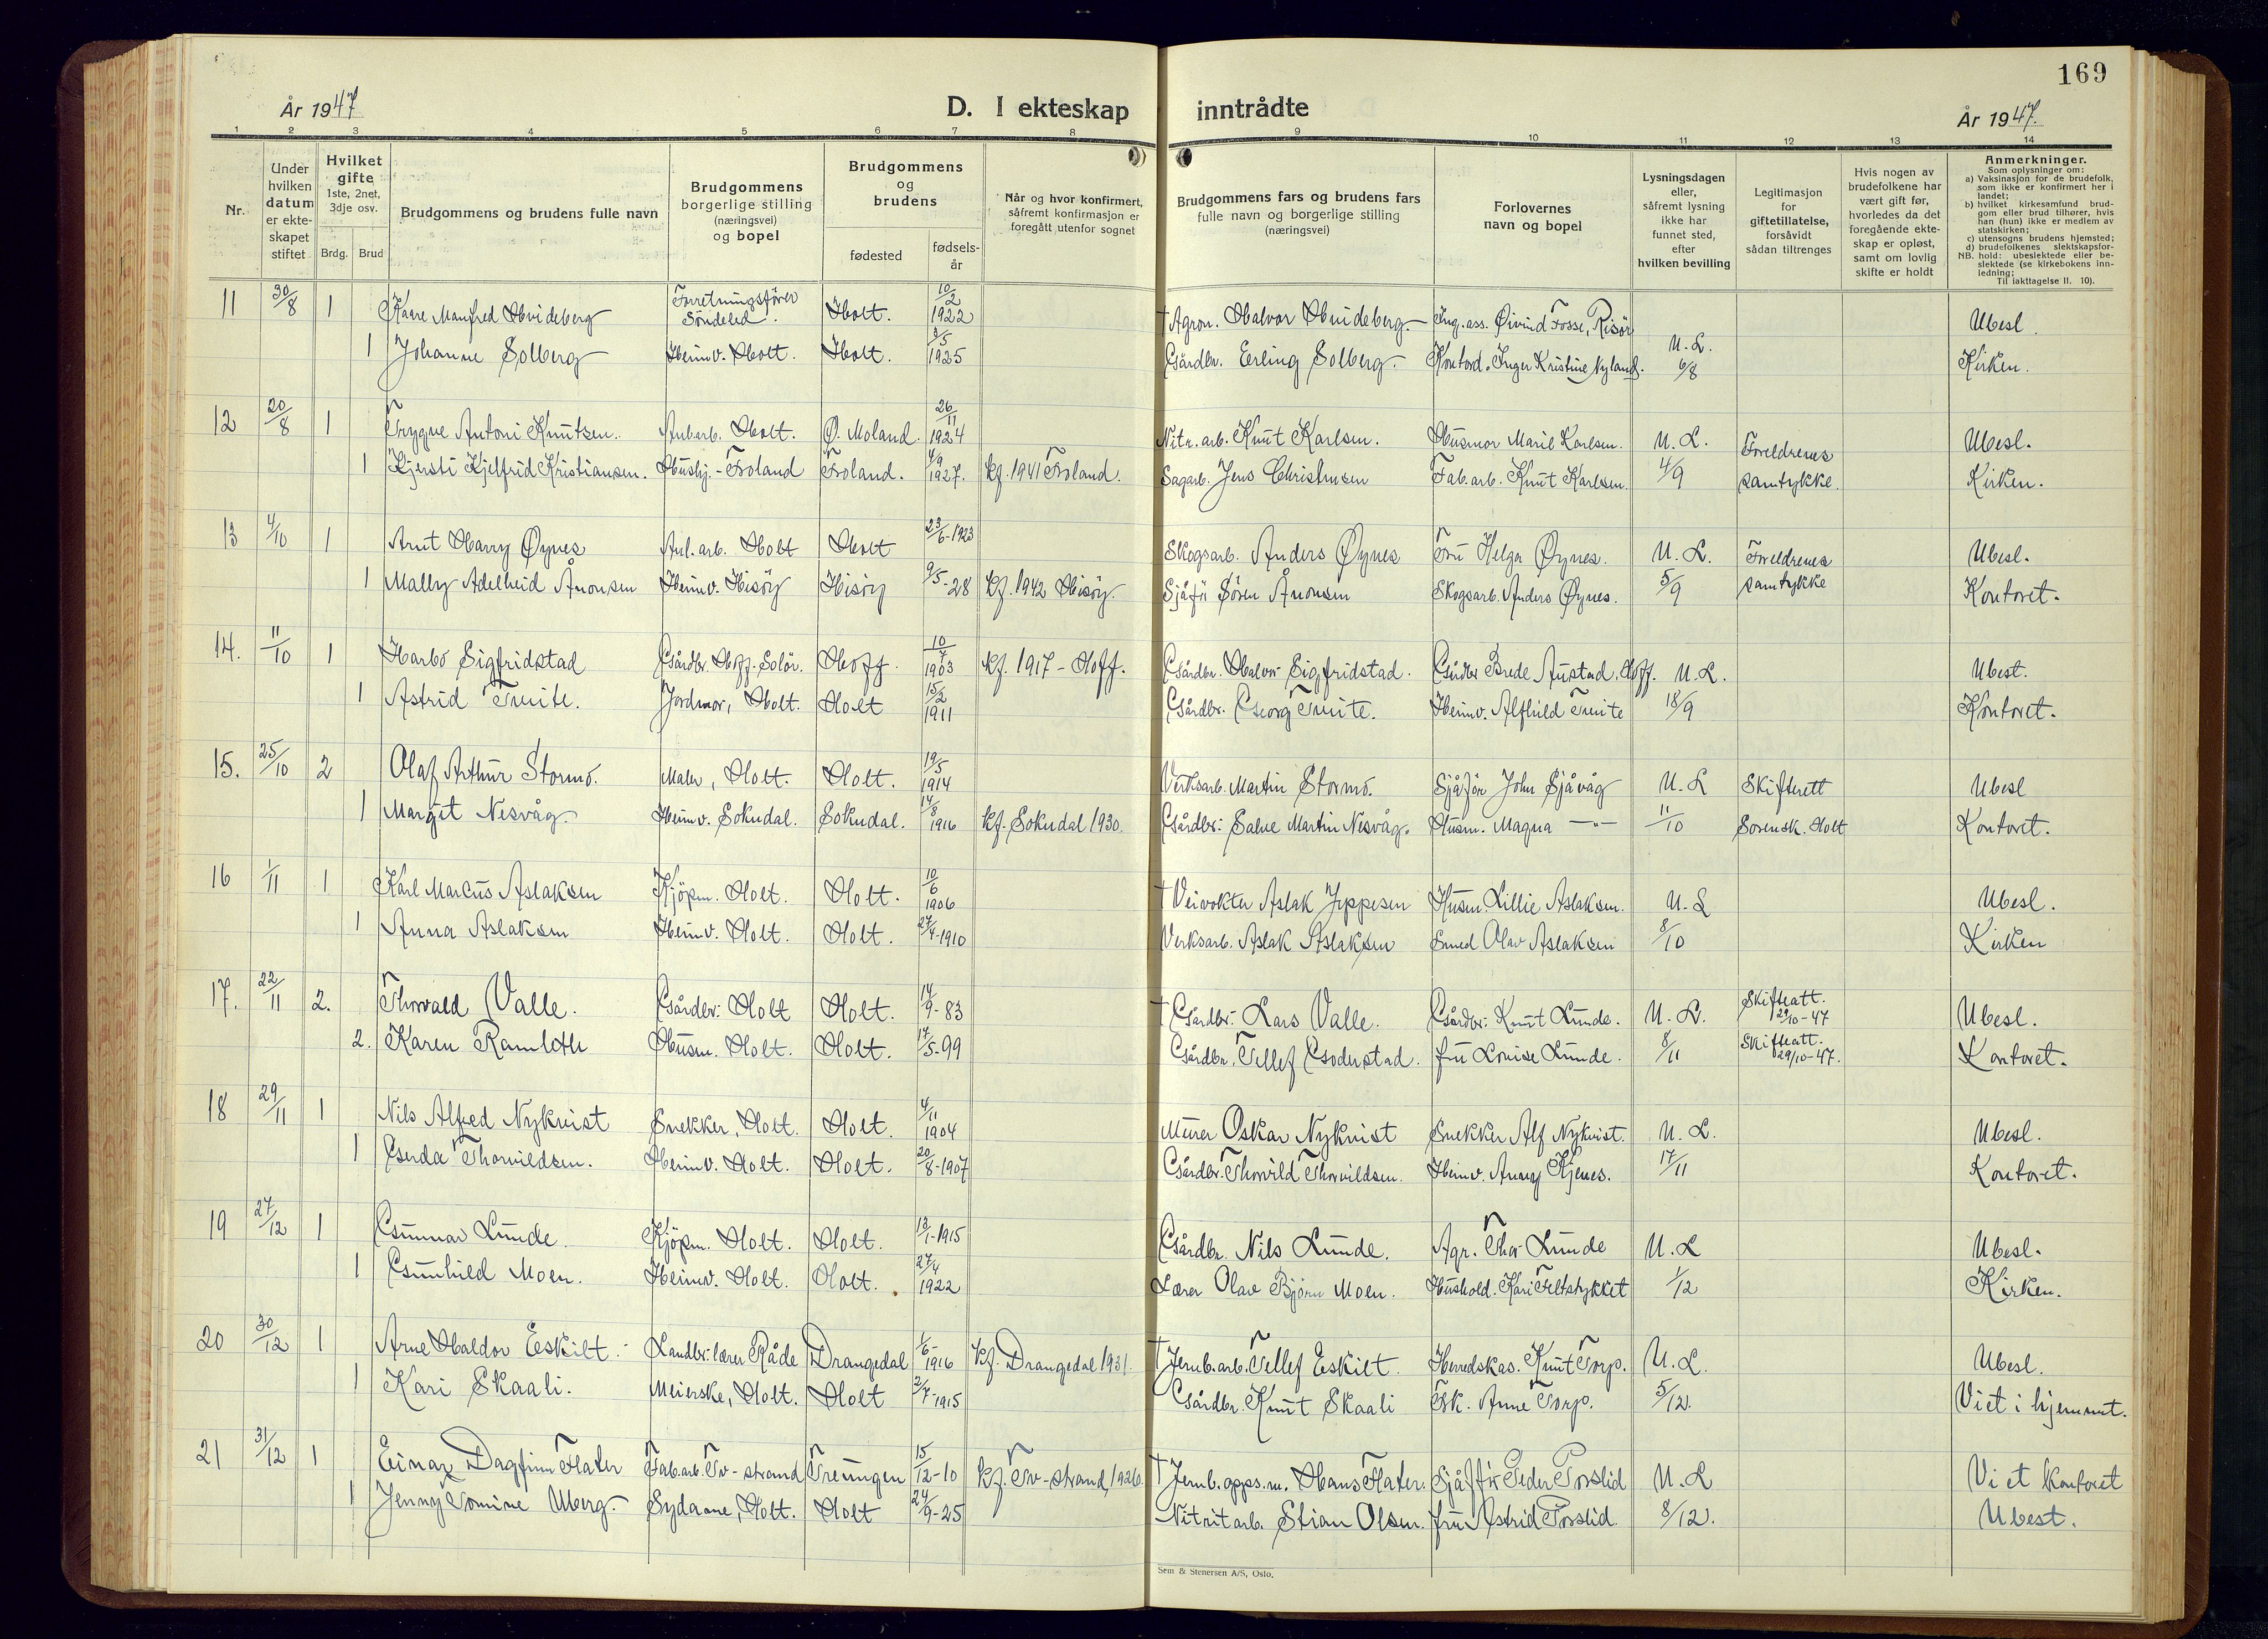 169
År 1947
D. I ekteskap inntrådte
År 1947.
1 2 3 4 5 6 7 8 9 10 11 12 13 14
Nr.
Under hvilken datum er ekte-skapet stiftet
Hvilket gifte 1ste, 2net, 3dje osv.
Brdg. Brud
Brudgommens og brudens fulle navn
Brudgommens borgerlige stilling (næringsvei) og bopel
Brudgommens og brudens
fødested
fødsels-år
Når og hvor konfirmert, såfremt konfirmasjon er foregått utenfor sognet
Brudgommens fars og brudens fars fulle navn og borgerlige stilling (næringsvei)
Forlovernes navn og bopel
Lysningsdagen eller, såfremt lysning ikke har funnet sted, efter hvilken bevilling
Legitimasjon for giftetillatelse, forsåvidt sådan tiltrenges
Hvis nogen av brudefolkene har vært gift før, hvorledes da det foregående ekte-skap er opløst, samt om lovlig skifte er holdt
Anmerkninger.
Som oplysninger om:
a) Vaksinasjon for de brudefolk, som ikke er konfirmert her i landet;
b) hvilket kirkesamfund brud-gom eller brud tilhører, hvis han (hun) ikke er medlem av statskirken;
c) utensogns brudens hjemsted;
d) brudefolkenes slektskapsfor-hold: ubeslektede eller be-slektede (se kirkebokens inn-ledning;
NB.
Til iakttagelse II. 10).
11 30/8 1 Kaare Manfred Hvideberg Forretningsfører Söndeled. Holt. 10/2 1922 † Agron. Halvor Hvideberg. Ing. ass. Øivind Fosse, Risör Ubesl.
1 Johanne Solberg Heimv. Holt. Holt. 3/5 1925 Gårdbr. Erling Solberg. Kontord. Inger Kristine Nyland. U. L. 6/8 Kirken.
12 20/8 1 Trygve Antoni Knutsen. Anl.arb. Holt. Ø. Moland. 26/11 1924 Nitr. arb. Knut Karlsen. Husmor Marie Karlsen. U. L. Foreldrenes Ubesl.
1 Kjersti Kjelfrid Kristiansen. Hushj. - Froland Froland. 4/9 1927. kf. 1941 Froland. Sagarb. Jens Christensen Fab.arb. Knut Karlsen. 4/9 samtykke. Kirken.
13 4/10 1 Arnt Harry Øynes Anl. arb. Holt Holt 23/6-1923 Skogsarb. Anders Øynes Fru Helga Øynes. U. L. Foreldrenes Ubesl.
1 Mally Adelheid Ånonsen Heimv. Hisöy Hisöy 9/5-28 kf. 1942 Hisöy. Sjåför Sören Ånonsen Skogsarb. Anders Øynes. 5/9 samtykke Kontoret.
14. 11/10 1 Harbo Sigfridstad Gårdbr. Hoff. Solör. Hoff. 10/7 1903 kf. 1917 - Hoff. Gårdbr. Halvor Sigfridstad. Gårdbr Brede Austad, Hoff. U. L. Ubesl.
1 Astrid Tveite. Jordmor, Holt. Holt 15/2 1911 Gårdbr. Georg Tveite. Heimv. Alfhild Tveite 18/9 Kontoret.
15. 25/10 2 Olaf Arthur Stormo. Maler, Holt. Holt. 19/5 1914 Verksarb. Martin Stormo. Sjåför John Sjåvåg U. L Skifterett Ubesl
1 Margit Nesvåg. Heimv. Sokndal. Sokndal. 14/8 1916 kf. Sokndal 1930. Gårdbr. Salve Martin Nesvåg. Husm. Magna —"— 11/10 Sorensk. Holt Kontoret.
16 1/11 1 Karl Marcus Aslaksen Kjöpm. Holt. Holt. 10/6 1906 † Veivokter Aslak Jeppesen Husm. Lillie Aslaksen. U. L Ubesl.
1 Anna Aslaksen Heimv. Holt. Holt. 27/4-1910 Verksarb. Aslak Aslaksen Smed Olav Aslaksen 8/10 Kirken
17. 22/11 2. Thorvald Valle. Gårdbr. Holt Holt. 14/9-83 † Gårdbr. Lars Valle. Gårdbr. Knut Lunde. U. L. Skifteatt. 29/10-47 Ubesl.
2. Karen Ramleth Husm. Holt. Holt. 17/5-99 Gårdbr. Tellef Goderstad. fru Lovise Lunde. 8/11 Skifteatt. 29/10-47. Kontoret.
18 29/11 1 Nils Alfred Nykvist Snekker, Holt. Holt. 4/11 1904 Murer Oskar Nykvist Snekker Alf Nykvist. U. L. Ubesl.
1 Gerda Thorvildsen. Heimv. Holt. Holt. 20/8-1907 Gårdbr. Thorvild Thorvildsen. Heimv. Anny Kjenes. 17/11 Kontoret.
19 27/12 1 Gunnar Lunde. Kjöpm. Holt. Holt. 13/1-1915 Gårdbr. Nils Lunde. Agr. Thor Lunde U. L Ubesl.
1 Gunhild Moen. Heimv. Holt. Holt. 27/4 1922 Lærer Olav Björn Moen. Hushold. Kari Feltstykket 1/12 Kirken.
20 30/12 1 Arne Haldor Eskilt. Landbr. lærer Råde Drangedal 1/6-1916 kf. Drangedal 1931. † Jernb.arb. Tellef Eskilt. Herredskas. Knut Torp. U. L. Ubesl.
1 Kari Skaali. Meierske, Holt. Holt 2/7-1915 Gårdbr. Knut Skaali Frk. Anne Torp. 5/12. Viet i hjemmet.
21 31/12 1 Einar Dagfinn Flater Fab.arb. Tv-strand Treungen 15/12-10 kf. Tv-strand, 1926. † Jernb. opps.m. Hans Flater. Sjåför Peder Torslid U. L Viet kontoret
1 Jenny Tomine Uberg. Sydame, Holt. Holt 24/9-25 Nitritarb. Stian Olsen. fru Astrid Torslid 8/12. Ubesl.
Sem & Stenersen A/S, Oslo.